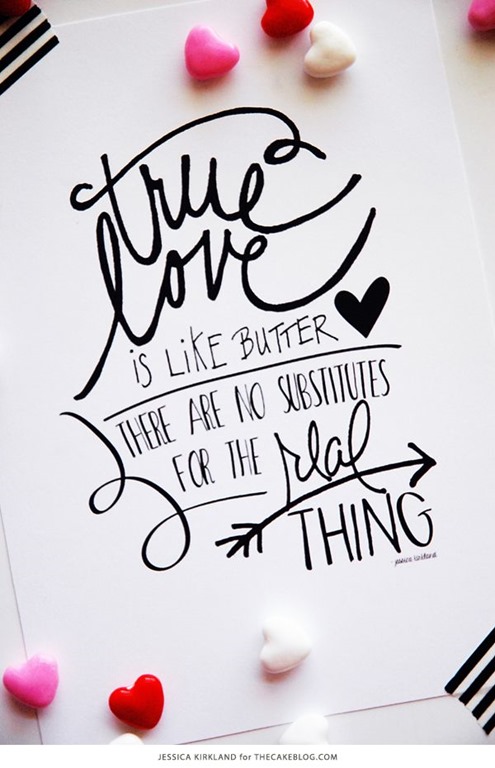 true
love
is LiKE BUTTER
THERE ARE NO SUBSTITUTES
FOR THE real
THING
- jessica kirkland
JESSICA KIRKLAND for THECAKEBLOG.COM